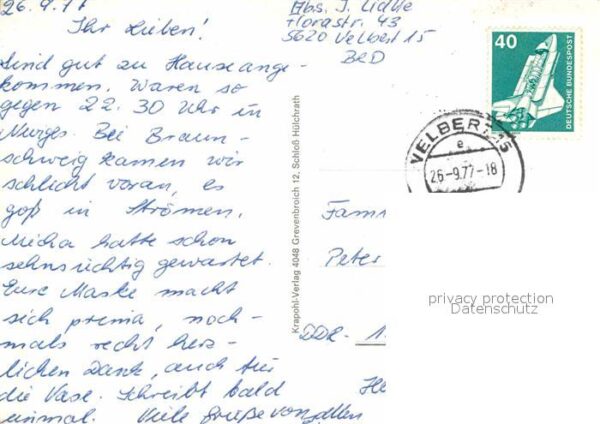 26.9.77
Ihr Lieben!
Sind gut zu Hause ange-
kommen. Waren so
gegen 22.30 Uhr in
Bei Braun-
schweig kamen wir
schlicht voran, es
goß in Strömen.
Micha hatte schon
sehnsüchtig gewartet.
Eure Maske macht
sich prima, noch-
mals recht herz-
lichen Dank, auch für
die Vase. Schreibt bald
einmal. Viele Grüße von allen
Abs. J.
Florastr. 43
5620 Velbert 15
BRD
40
DEUTSCHE BUNDESPOST
VELBERT 15
e
26-9.77-18
Krapohl-Verlag 4048 Grevenbroich 12, Schloß Hülchrath
Fam
Peter
DDR - 1
He
privacy protection
Datenschutz